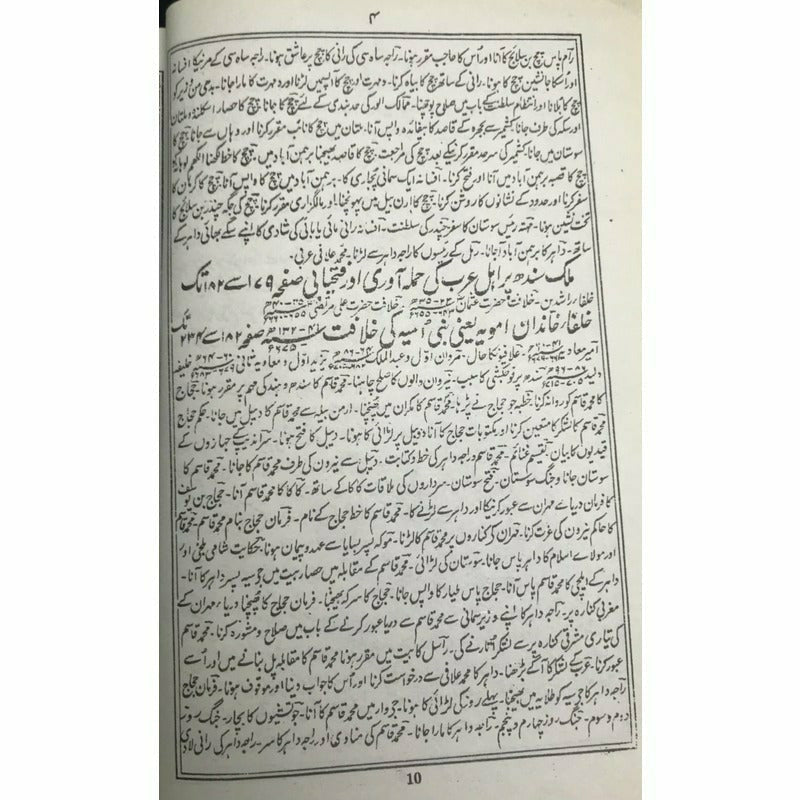 ۴
رام پاس چچ بن سلائج کا آنا اور اُس کا حاجب مقرر ہونا۔ راجہ ساہ سی کی رانی کا چچ پر عاشق ہونا۔ راجہ ساہ سی کے مرنیکا افسانہ
اور اُسکا جانشین چچ کا ہونا۔ رانی کے ساتھ چچ کا بیاہ کرنا۔ مہرت اور چچ کا آپسمیں لڑنا اور مہرت کا مارا جانا۔ بدھی من وزیر کو
چچ کا بلانا اور انتظام سلطنت کے باب میں صلاح پوچھنا۔ ممالک اور کی حد بندی کے لئے چچ کا جانا۔ چچ کا حصار اسکلندہ و ملتان
اور سکہ کی طرف جانا۔ کشمیر سے بجہرہ کے قاصد کا بیفائدہ واپس آنا۔ ملتان میں چچ کا نائب مقرر کرنا اور وہاں سے جانا۔ چچ کا
سوستان میں جانا۔ کشمیر کی سرحد مقرر کرنیکے بعد چچ کی مراجعت۔ چچ کا قاصد بھیجنا برہمن آباد میں۔ چچ کا خط لکھنا اکھم لوہانہ
چچ کا قصبہ برہمن آباد میں آنا اور فتح کرنا۔ افسانہ ایک سمانی پجاری کا۔ برہمن آباد میں چچ کا واپس آنا۔ چچ کا کرمان کا
سفر کرنا اور حدود کے نشانوں کا روشن کرنا۔ چچ کا ارمن بیل میں پہونچنا اور مالگزاری مقرر کرنا۔ چچ کی جگہ چندر بن سلائج کا
تخت نشین ہونا۔ مہتہ رئیس سوستان کا سفر۔ چندر کی سلطنت۔ افسانہ رانی مائی یا بائی کی شادی کا اپنے سگے بھائی داہر کے
ساتھ۔ داہر کا برہمن آباد آجانا۔ رمل کے رئیسوں کا راجہ داہر سے لڑنا۔ محمد علافی عربی۔
ملک سندھ پر اہل عرب کی حملہ آوری اور فتحیابی صفحہ ۱۷۹ سے ۱۸۲ تک
خلفاء راشدین۔ خلافت حضرت عثمان خلافت حضرت علی مرتضیٰ
خلفاء خاندان امویہ یعنی بنی اُمیہ کی خلافت صفحہ ۱۸۲ سے ۲۳۴ تک
امیر معاویہ علافیونکا حال۔ مروان اوّل و عبد الملک یزید اوّل و معاویہ ثانی خلیفہ
ولید سندھ پر لشکر کشی کا سبب۔ نیرون والوں کا صلح چاہنا۔ محمد قاسم کا سندھ و ہند کی مہم پر مقرر ہونا۔ حجاج
کا محمد قاسم کو روانہ کرنا۔ خطبہ جو حجاج نے پڑھا۔ محمد قاسم کا مکران میں پہنچنا۔ ارمن بیلہ سے محمد قاسم کا دیبل میں جانا۔ حکم حجاج
محمد قاسم کا لشکر کا متعین کرنا اور مکتوبات حجاج کا آنا۔ دیبل پر لڑائی کا ہونا۔ دیبل کا فتح ہونا۔ سراندیپ کے جہازوں کے
قیدیوں کا بیان۔ تقسیم غنائم۔ محمد قاسم و راجہ داہر کی خط و کتابت۔ دیبل سے نیرون کی طرف محمد قاسم کا جانا۔ محمد قاسم کا
سوستان جانا و جنگ سوستان۔ فتح سوستان۔ سرداروں کی ملاقات کاکا کے ساتھ۔ کاکا کا محمد قاسم پاس آنا۔ حجاج بن یوسف
کا فرمان دریائے مہران سے عبور کرنیکا اور داہر سے لڑنے کا۔ محمد قاسم کا خط حجاج کے نام۔ فرمان حجاج بنام محمد قاسم۔ محمد قاسم
کا حاکم نیرون کی عزت کرنا۔ مہران کی کناروں پر محمد قاسم کا لڑنا۔ موکہ پسر بسایا سے عہد و پیمان ہونا۔ حکایت شامی ایلچی اور
مولائے اسلام کا داہر پاس جانا۔ سوستان کی لڑائی۔ محمد قاسم کے مقابلہ میں حصار بیت میں جیسیہ پسر داہر کا آنا۔
داہر کے ایلچی کا محمد قاسم پاس آنا۔ حجاج پاس طیار کا واپس جانا۔ حجاج کا سرکہ بھیجنا۔ فرمان حجاج کا پہنچنا دریاء مہران کے
مغربی کنارہ پر۔ راجہ داہر کا اپنے وزیر سمانی سے محمد قاسم سے دریا عبور کرنے کے باب میں صلاح و مشورہ کرنا۔ محمد قاسم
کی تیاری مشرقی کنارہ پر سے لشکر اتارنے کی۔ راسل کا بیت میں مقرر ہونا محمد قاسم کا مقابلہ پل بنانے میں اور اُسے
عبور کرنا۔ عرب کے لشکر کا آگے بڑھنا۔ داہر کا محمد علافی سے درخواست کرنا اور اُس کا جواب دینا اور موقوف ہونا۔ فرمان حجاج
راجہ داہر کا جیسیہ کو طلایہ میں بھیجنا۔ پہلے روز کی لڑائی کا ہونا۔ جیوار میں محمد قاسم کا آنا۔ جوتشیوں کا بچار۔ جنگ روز
دوم و سوم۔ جنگ روز چہارم و پنجم۔ راجہ داہر کا مارا جانا۔ محمد قاسم کی منادی اور راجہ داہر کا سر۔ راجہ داہر کی رانی لادی
10